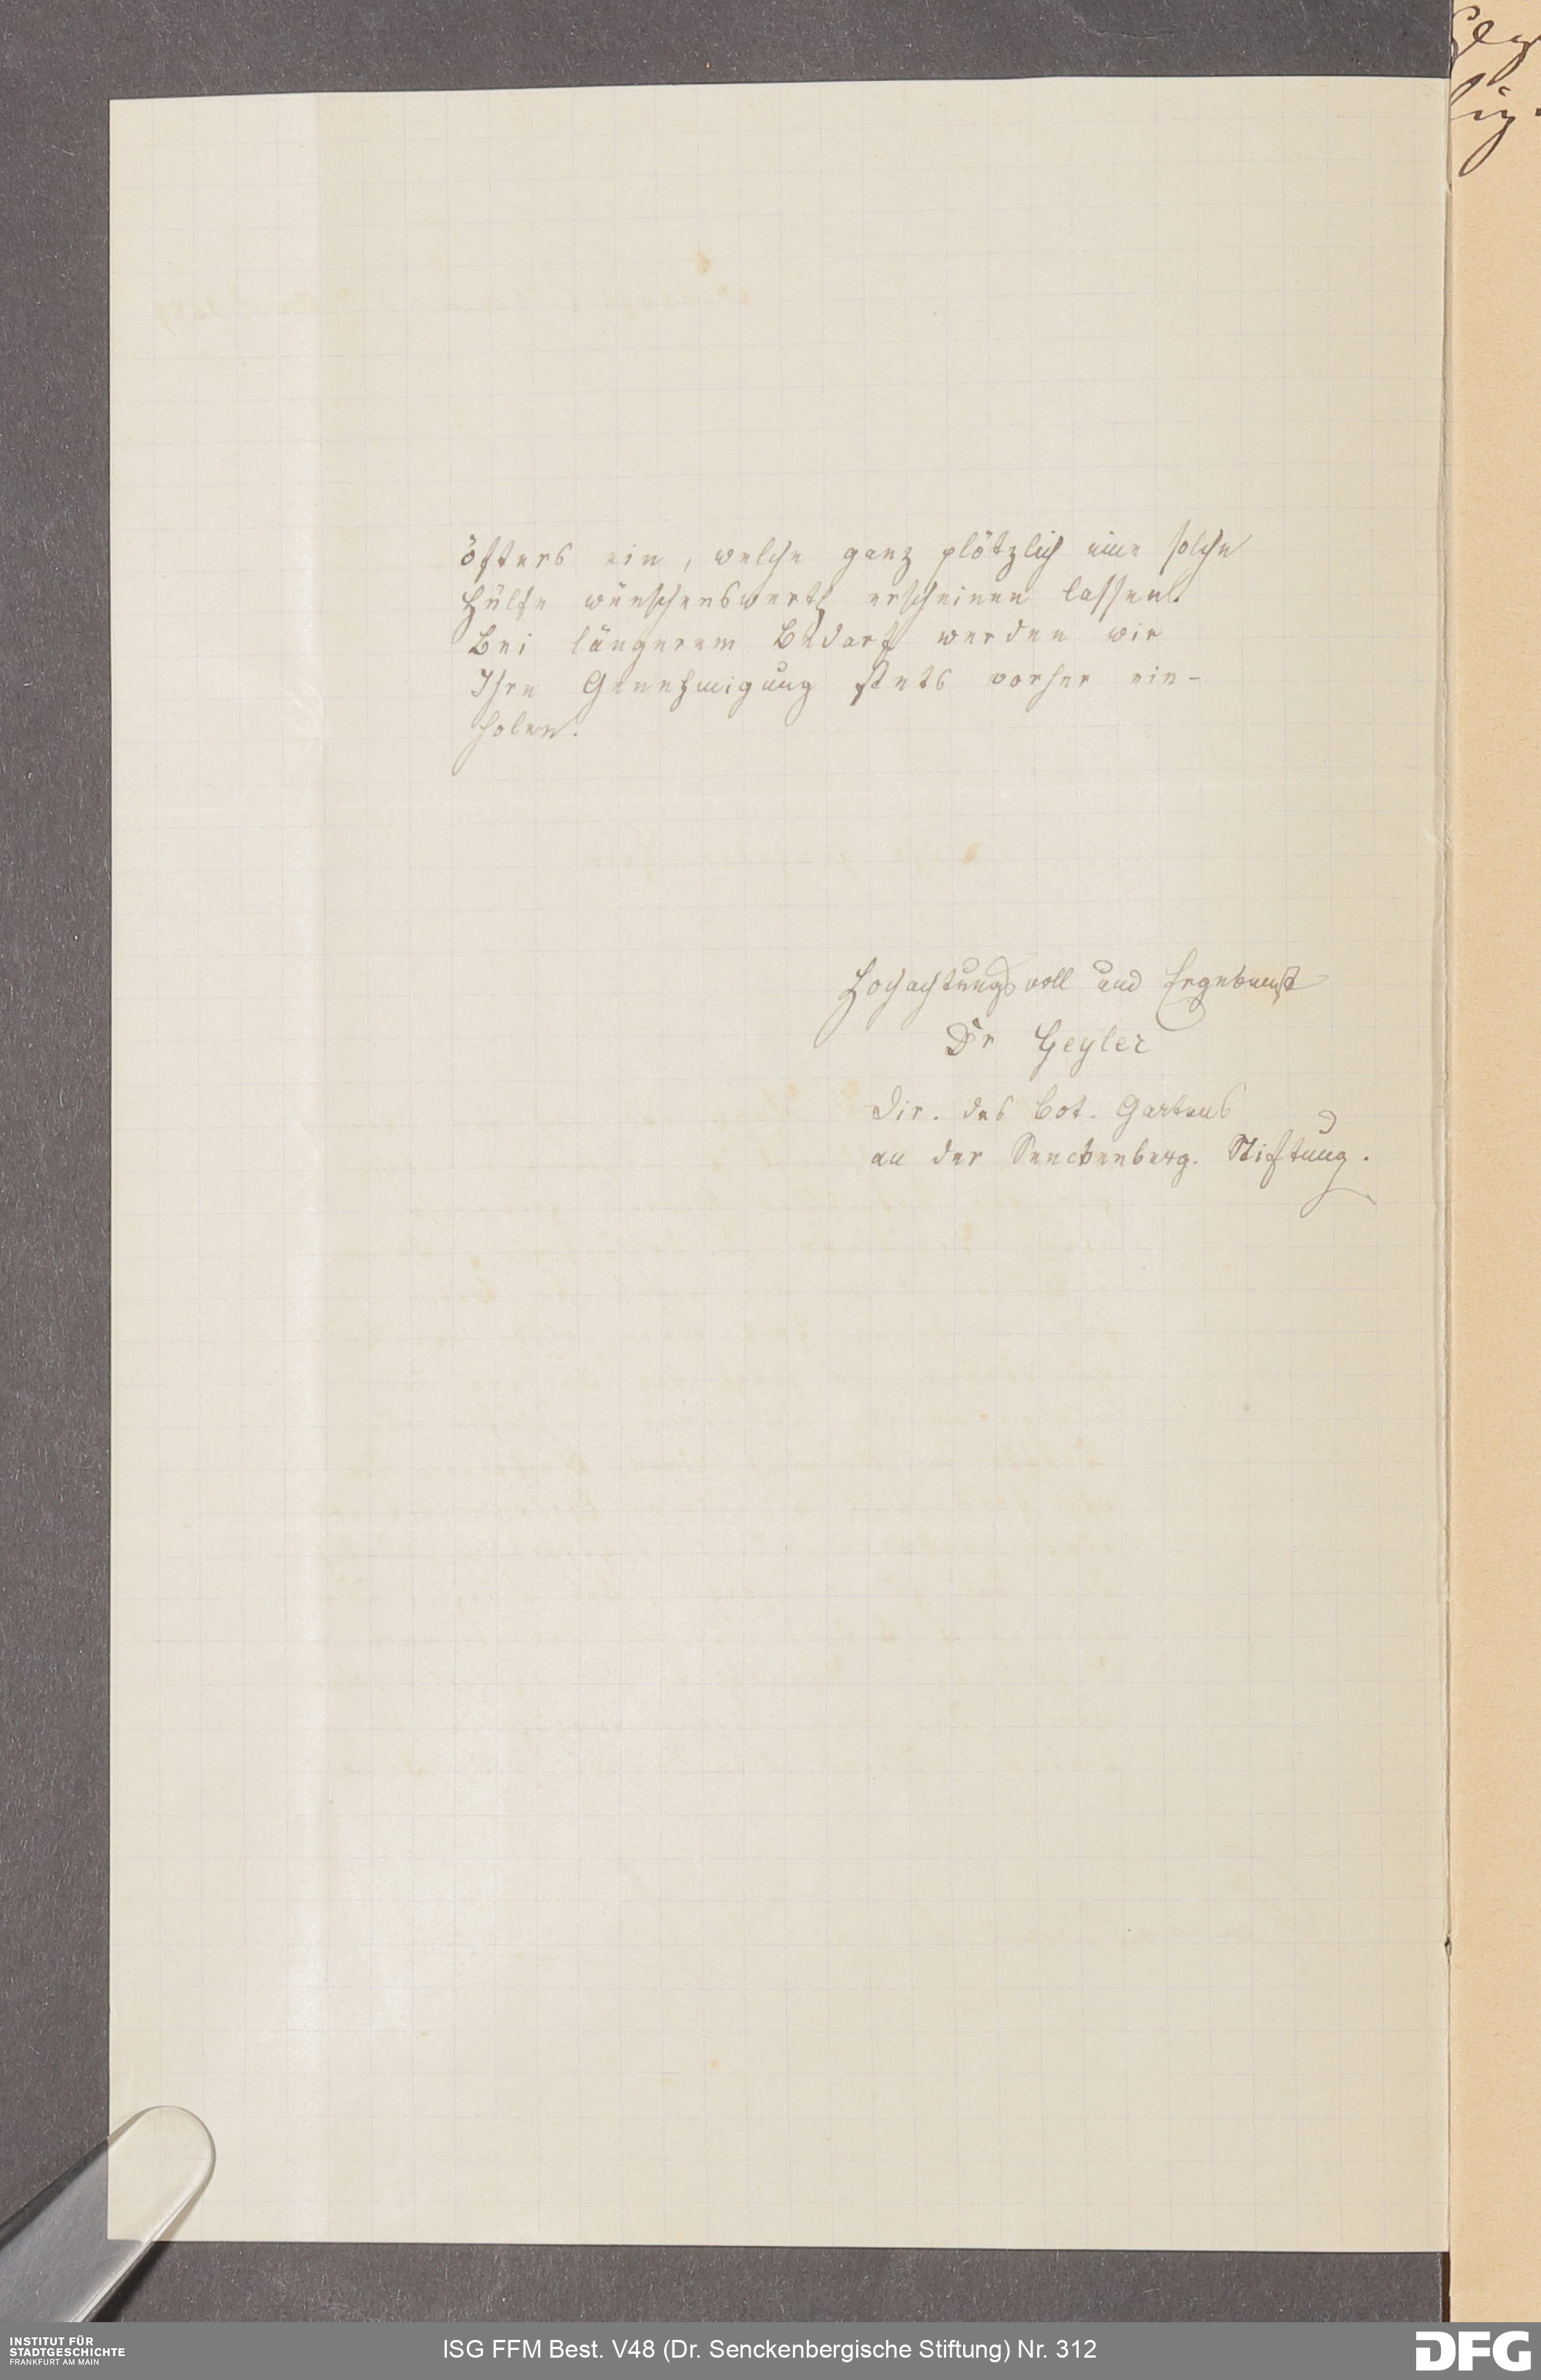 öfters ein, welche ganz plötzlich eine solche
Hülfe wünschenswerth erscheinen lassen.
Bei längerem Bedarf werden wir
Ihre Genehmigung stets vorher ein-
holen.
Hochachtungsvoll und Ergebenst
Dr Geyler
Dir. des bot. Gartens
an der Senckenberg. Stiftung.
INSTITUT FÜR
STADTGESCHICHTE
FRANKFURT AM MAIN
ISG FFM Best. V48 (Dr. Senckenbergische Stiftung) Nr. 312
DFG